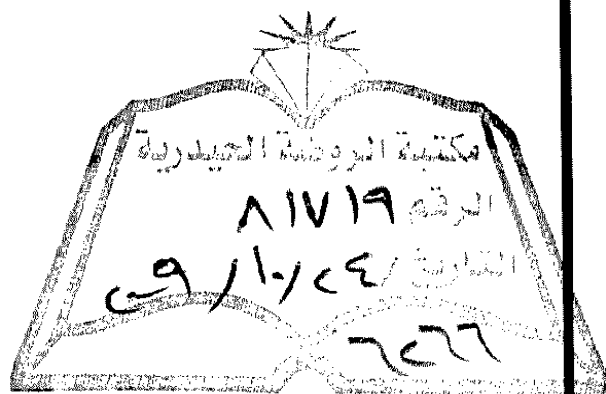 مكتبة الروضة الحيدرية
الرقم ٨١٧١٩
التاريخ ٢٤/١٠/